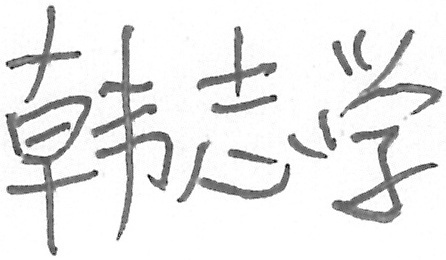 韩志学